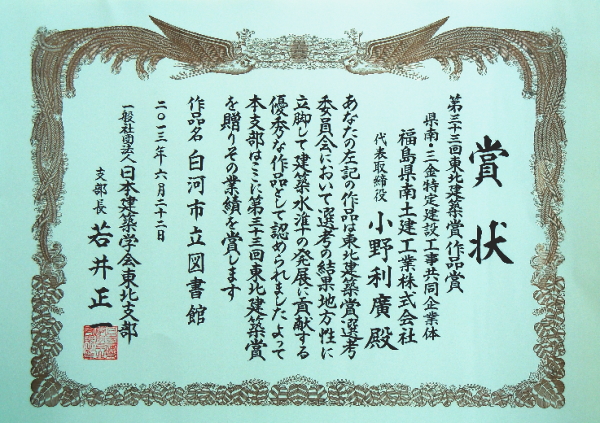 賞状
第三十三回東北建築賞作品賞
県南・三金特定建設工事共同企業体
福島県南土建工業株式会社
代表取締役 小野利廣殿
あなたの左記の作品は東北建築賞選考
委員会において選考の結果地方性に
立脚して建築水準の発展に貢献する
優秀な作品として認められましたよって
本支部はここに第三十三回東北建築賞
を贈りその業績を賞します
作品名 白河市立図書館
二〇一三年六月二十二日
一般社団法人日本建築学会東北支部
支部長 若井正一